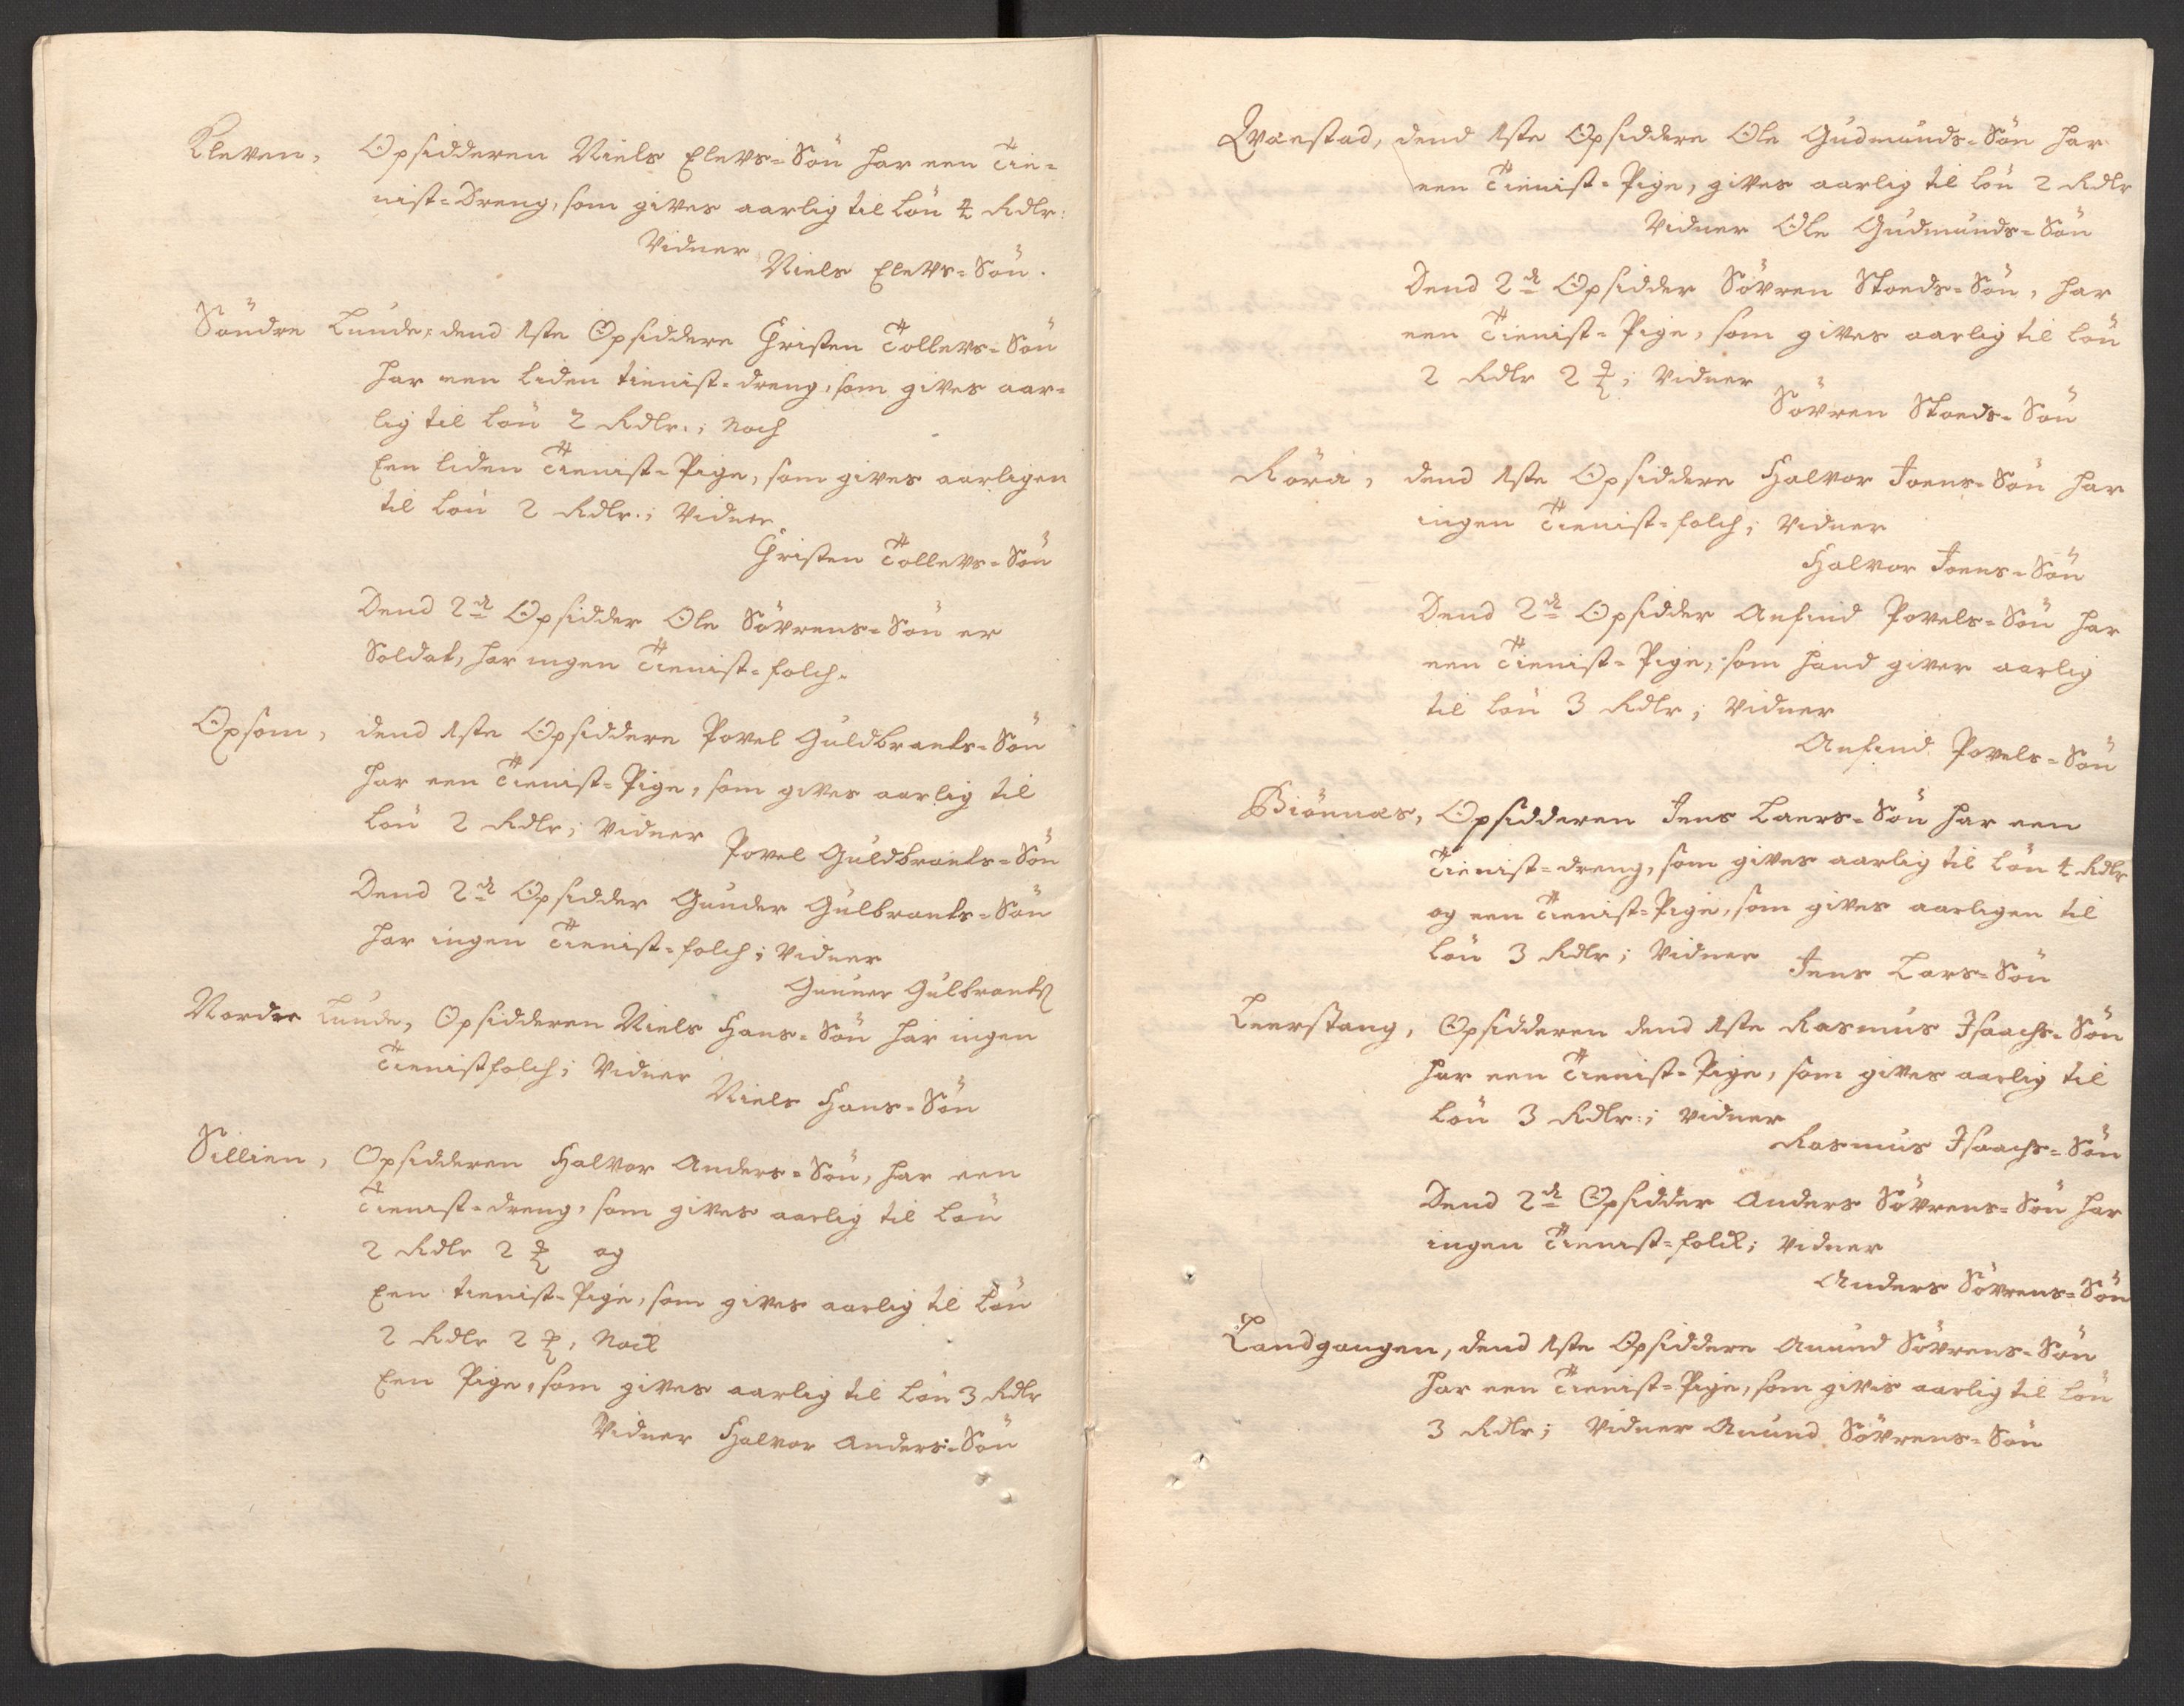 Kleven, Opsidderen Niels Elevs=Sön har een Tie-
nist=Dreng, som gives aarlig til Lön 4 Rdlr:
Vidner
Niels Elevs=Sön.
Söndre Lunde, dend 1ste Opsiddere Christen Tollevs=Sön
har een liden tienist=dreng, som gives aar-
lig til Lön 2 Rdlr.; Noch
Een liden Tienist=Pige, som gives aarligen
til Lön 2 Rdlr.; Vidner
Christen Tollevs=Sön
Dend 2de Opsidder Ole Sövrens=Sön er
Soldat, har ingen Tienist=folch.
Opsom, dend 1ste Opsiddere Povel Guldbrants=Sön
har een Tienist=Pige, som gives aarlig til
Lön 2 Rdlr; Vidner
Povel Guldbrants=Sön
Dend 2de Opsidder Gunder Gulbrants=Sön
har ingen Tienist=folch; Vidner
Gunner Gulbrants
Nordre Lunde, Opsidderen Niels Hans=Sön har ingen
Tienistfolch; Vidner
Niels Hans=Sön
Sillien, Opsidderen Halvor Anders=Sön, har een
Tienist=dreng, som gives aarlig til Lön
2 Rdlr 2 og
Een tienist=Pige, som gives aarlig til Lön
2 Rdlr 2, Noch
Een Pige, som gives aarlig til Lön 3 Rdlr
Vidner Halvor Anders=Sön
Qvæstad, dend 1ste Opsiddere Ole Gudmunds=Sön har
een Tienist=Pige, gives aarlig til Lön 2 Rdlr
Vidner Ole Gudmunds=Sön
Dend 2de Opsidder Sövren Stoeds=Sön, har
een Tienist=Pige, som gives aarlig til Lön
2 Rdlr 2; Vidner
Sövren Stoeds=Sön
Röra, dend 1ste Opsiddere Halvor Joens=Sön har
ingen Tienist=folch; Vidner
Halvor Joens=Sön
Dend 2de Opsidder Anfind Povels=Sön har
een Tienist=Pige, som hand giver aarlig
til Lön 3 Rdlr; Vidner
Anfind Povels=Sön
Biönnæs, Opsidderen Jens Laers=Sön har een
Tienist=dreng, som gives aarlig til Lön 4 Rdlr
og een Tienist=Pige, som gives aarligen til
Lön 3 Rdlr; Vidner
Jens Lars=Sön
Leerstang, Opsidderen dend 1ste Rasmus Isachs=Sön
har een Tienist=Pige, som gives aarlig til
Lön 3 Rdlr:; Vidner
Rasmus Isaachs=Sön
Dend 2de Opsidder Anders Sövrens=Sön har
ingen Tienist=folck; Vidner
Anders Sövrens=Sön
Landgangen, dend 1ste Opsiddere Amund Sövrens=Sön
har een Tienist=Pige, som givis aarlig til Lön
3 Rdlr; Vidner Amund Sövrens=Sön